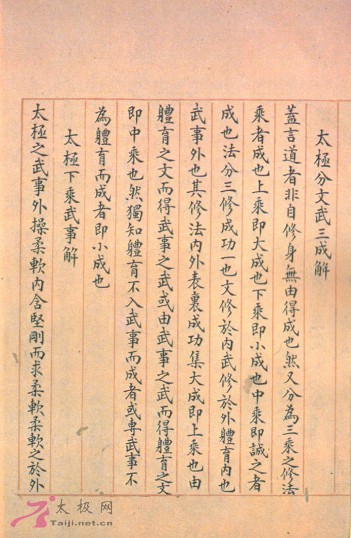 太極分文武三成解
蓋言道者非自修身無由得成也然又分為三乘之修法
乘者成也上乘即大成也下乘即小成也中乘即誠之者
成也法分三修成功一也文修於內武修於外體育內也
武事外也其修法內外表裏成功集大成即上乘也由
體育之文而得武事之武或由武事之武而得體育之文
即中乘也然獨知體育不入武事而成者或專武事不
為體育而成者即小成也
太極下乘武事解
太極之武事外操柔軟內含堅剛而求柔軟柔軟之於外
太极网
Taiji.net.cn